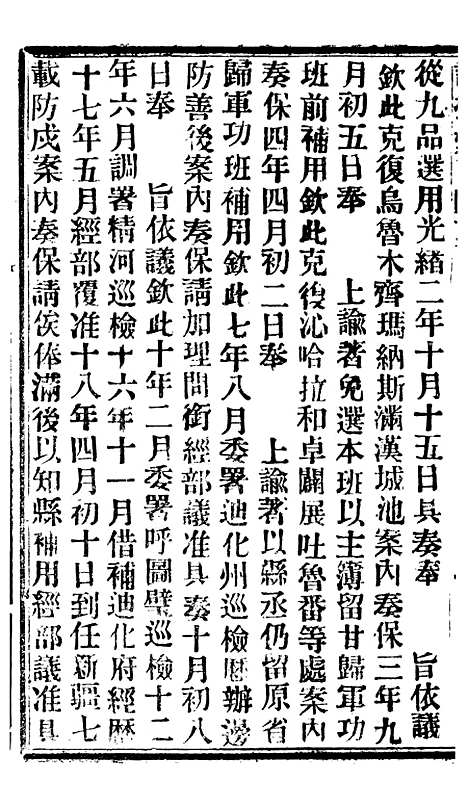 從九品選用光緒二年十月十五日具奏奉　旨依議
欽此克復烏魯木齊瑪納斯滿漢城池案內奏保三年九
月初五日奉　上諭著免選本班以主簿留甘歸軍功
班前補用欽此克復沁哈拉和卓闢展吐魯番等處案內
奏保四年四月初二日奉　上諭著以縣丞仍留原省
歸軍功班補用欽此七年八月委署迪化州巡檢歷辦邊
防善後案內奏保請加理問銜經部議准具奏十月初八
日奉　旨依議欽此十年二月委署呼圖壁巡檢十二
年六月調署精河巡檢十六年十一月借補迪化府經歷
十七年五月經部覆准十八年四月初十日到任新疆七
載防戍案內奏保請俟俸滿後以知縣補用經部議准具